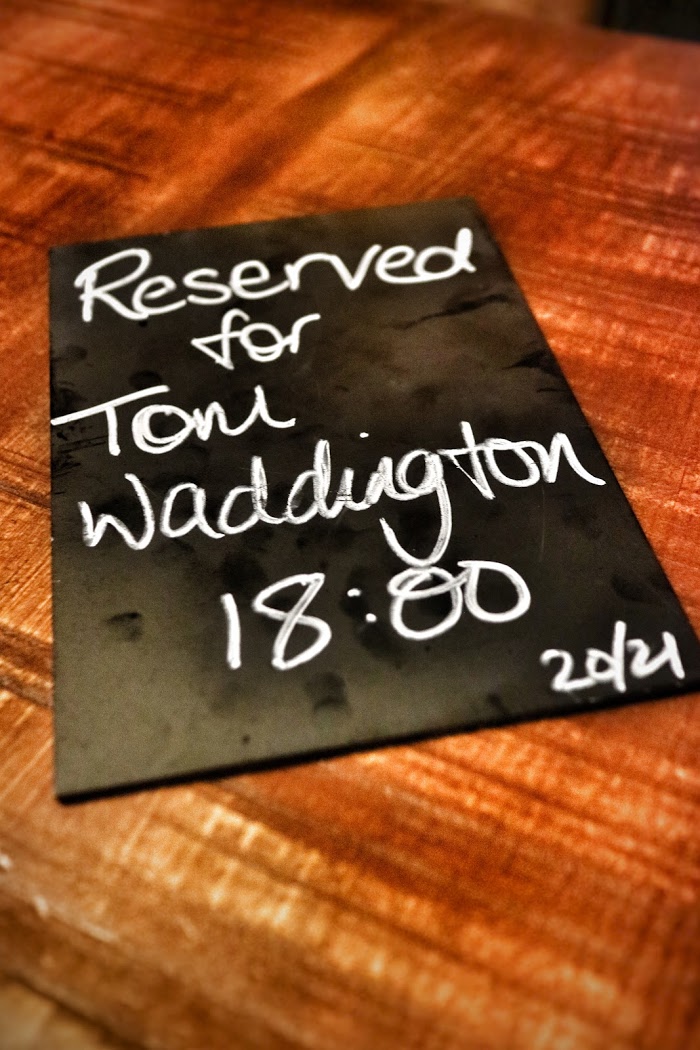 Reserved
for
Tom
Waddington
18:00
20/21